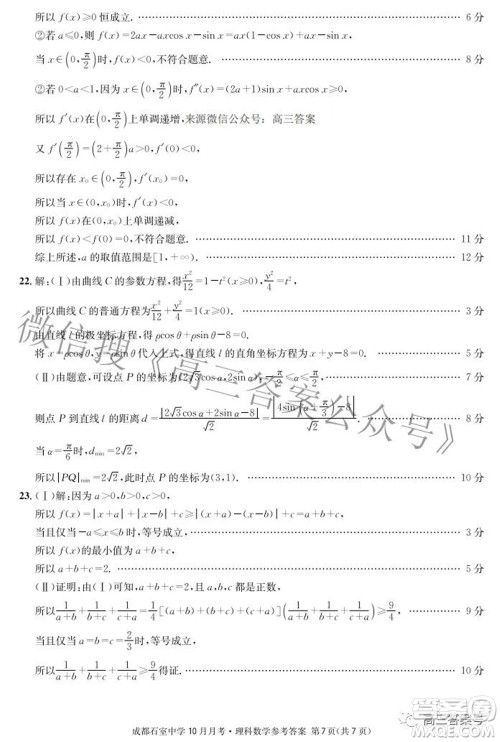 所以 f(x)≥0 恒成立. 6 分
②若 a≤0,则 f(x)=2ax-sin x-axcos x=ax(1-cos x)+ax-sin x,
当 x∈(0,π/2)时,f(x)<0,不符合题意. 8 分
②若 0<a<1,因为 x∈(0,π/2)时,f″(x)=(2a+1)sin x+axcos x>0,
所以 f′(x)在(0,π/2)上单调递增, 来源微信公众号:高三答案
又 f′(π/2)=(2+π/2)a>0,f′(0)<0,
所以存在 x₀∈(0,π/2),f′(x₀)=0,
所以当 x∈(0,x₀)时,f′(x)<0,
所以 f(x)在(0,x₀)上单调递减,
所以 f(x)<f(0)=0,不符合题意. 11 分
综上所述,a 的取值范围是[1,+∞). 12 分
22. 解:(Ⅰ)由曲线 C 的参数方程,得x²/12=1-t²(x≥0),y²/4=t²,
所以曲线 C 的普通方程为x²/12+y²/4=1(x≥0). 2 分
由直线 l 的极坐标方程,得 ρcos θ+ρsin θ-8=0.
将 x=ρcos θ,y=ρsin θ 代入上式,得直线 l 的直角坐标方程为 x+y-8=0. 5 分
(Ⅱ)由题意,可设点 P 的坐标为(2√3cos α,2sin α),-π/2≤α≤π/2,
则点 P 到直线 l 的距离 d=|2√3cos α+2sin α-8|/√2=|4sin(α+π/3)-8|/√2. 8 分
当 α=π/6时,dmin=2√2,
所以|PQ|min=2√2,此时点 P 的坐标为(3,1). 10 分
23. (Ⅰ)解:因为 a>0,b>0,c>0,
所以 f(x)=|x+a|+|x-b|+c≥|x+a-x+b|+c=|a+b|+c=a+b+c,
当且仅当-a≤x≤b 时,等号成立,
所以 f(x)的最小值为 a+b+c,
所以 a+b+c=2. 5 分
(Ⅱ)证明:由(Ⅰ)可知,a+b+c=2,且 a,b,c 都是正数,
所以1/(a+b)+1/(b+c)+1/(c+a)=1/4[(a+b)+(b+c)+(c+a)](1/(a+b)+1/(b+c)+1/(c+a))≥9/4, 9 分
当且仅当 a=b=c=2/3时,等号成立,
所以1/(a+b)+1/(b+c)+1/(c+a)≥9/4得证. 10 分
成都石室中学 10 月月考·理科数学参考答案 第 7 页(共 7 页)
微信搜《高三答案公众号》
高三答案号